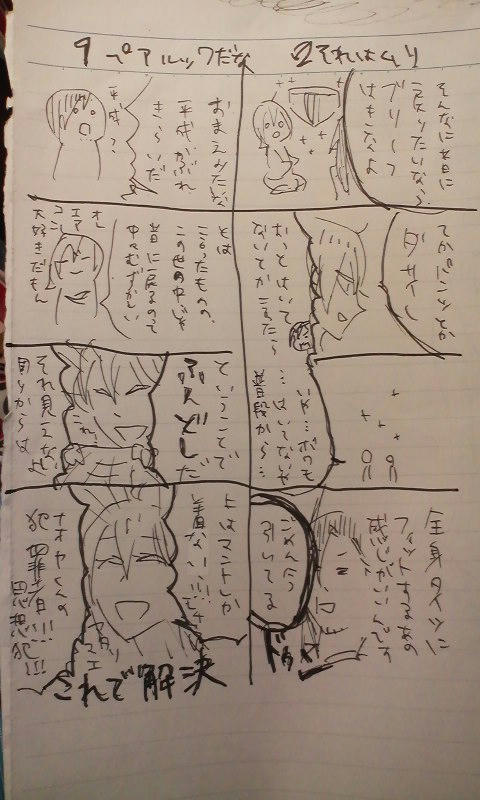 2 それはムリ
そんなに昔に
戻りたいなら
ブリーフ
はきなよ
てかパンツとか
ダサイし
おっとはいて
ないてかこまたら
いや…ボクも
…はいてないや
普段から…
全身タイツに
フィットするあの
感じがいいんです
ごめん今
引いてる
ドゥン
1 ペアルックだな
おまえみたいな
平成かぶれ
きらいだ
平成?
とは
言ったものの、
この世の中じゃ
昔に戻るので
中々むずかしい
オレ
エア
コン
大好きだもん
ということで
ふんどしだ
これ
それ見えないし
周りからは
上はマントしか
着ない!!!です
アタリ
マエ
ナオヤくんの
犯罪者!!!
思想犯!!!
これで解決